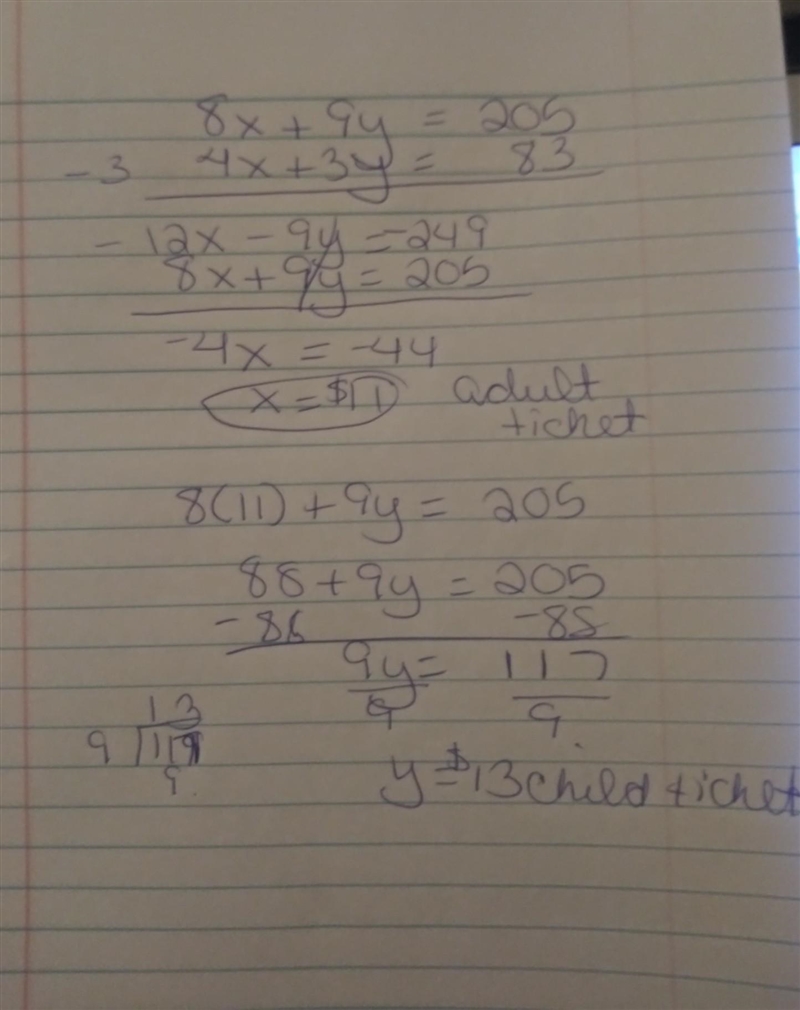 8x + 9y = 205
-3 4x + 3y = 83
-12x - 9y = -249
8x + 9y = 205
-4x = -44
x = $11 adult
ticket
8(11) + 9y = 205
88 + 9y = 205
-88 -88
9y = 117
9 9
13
9
9
y = $13 child ticket